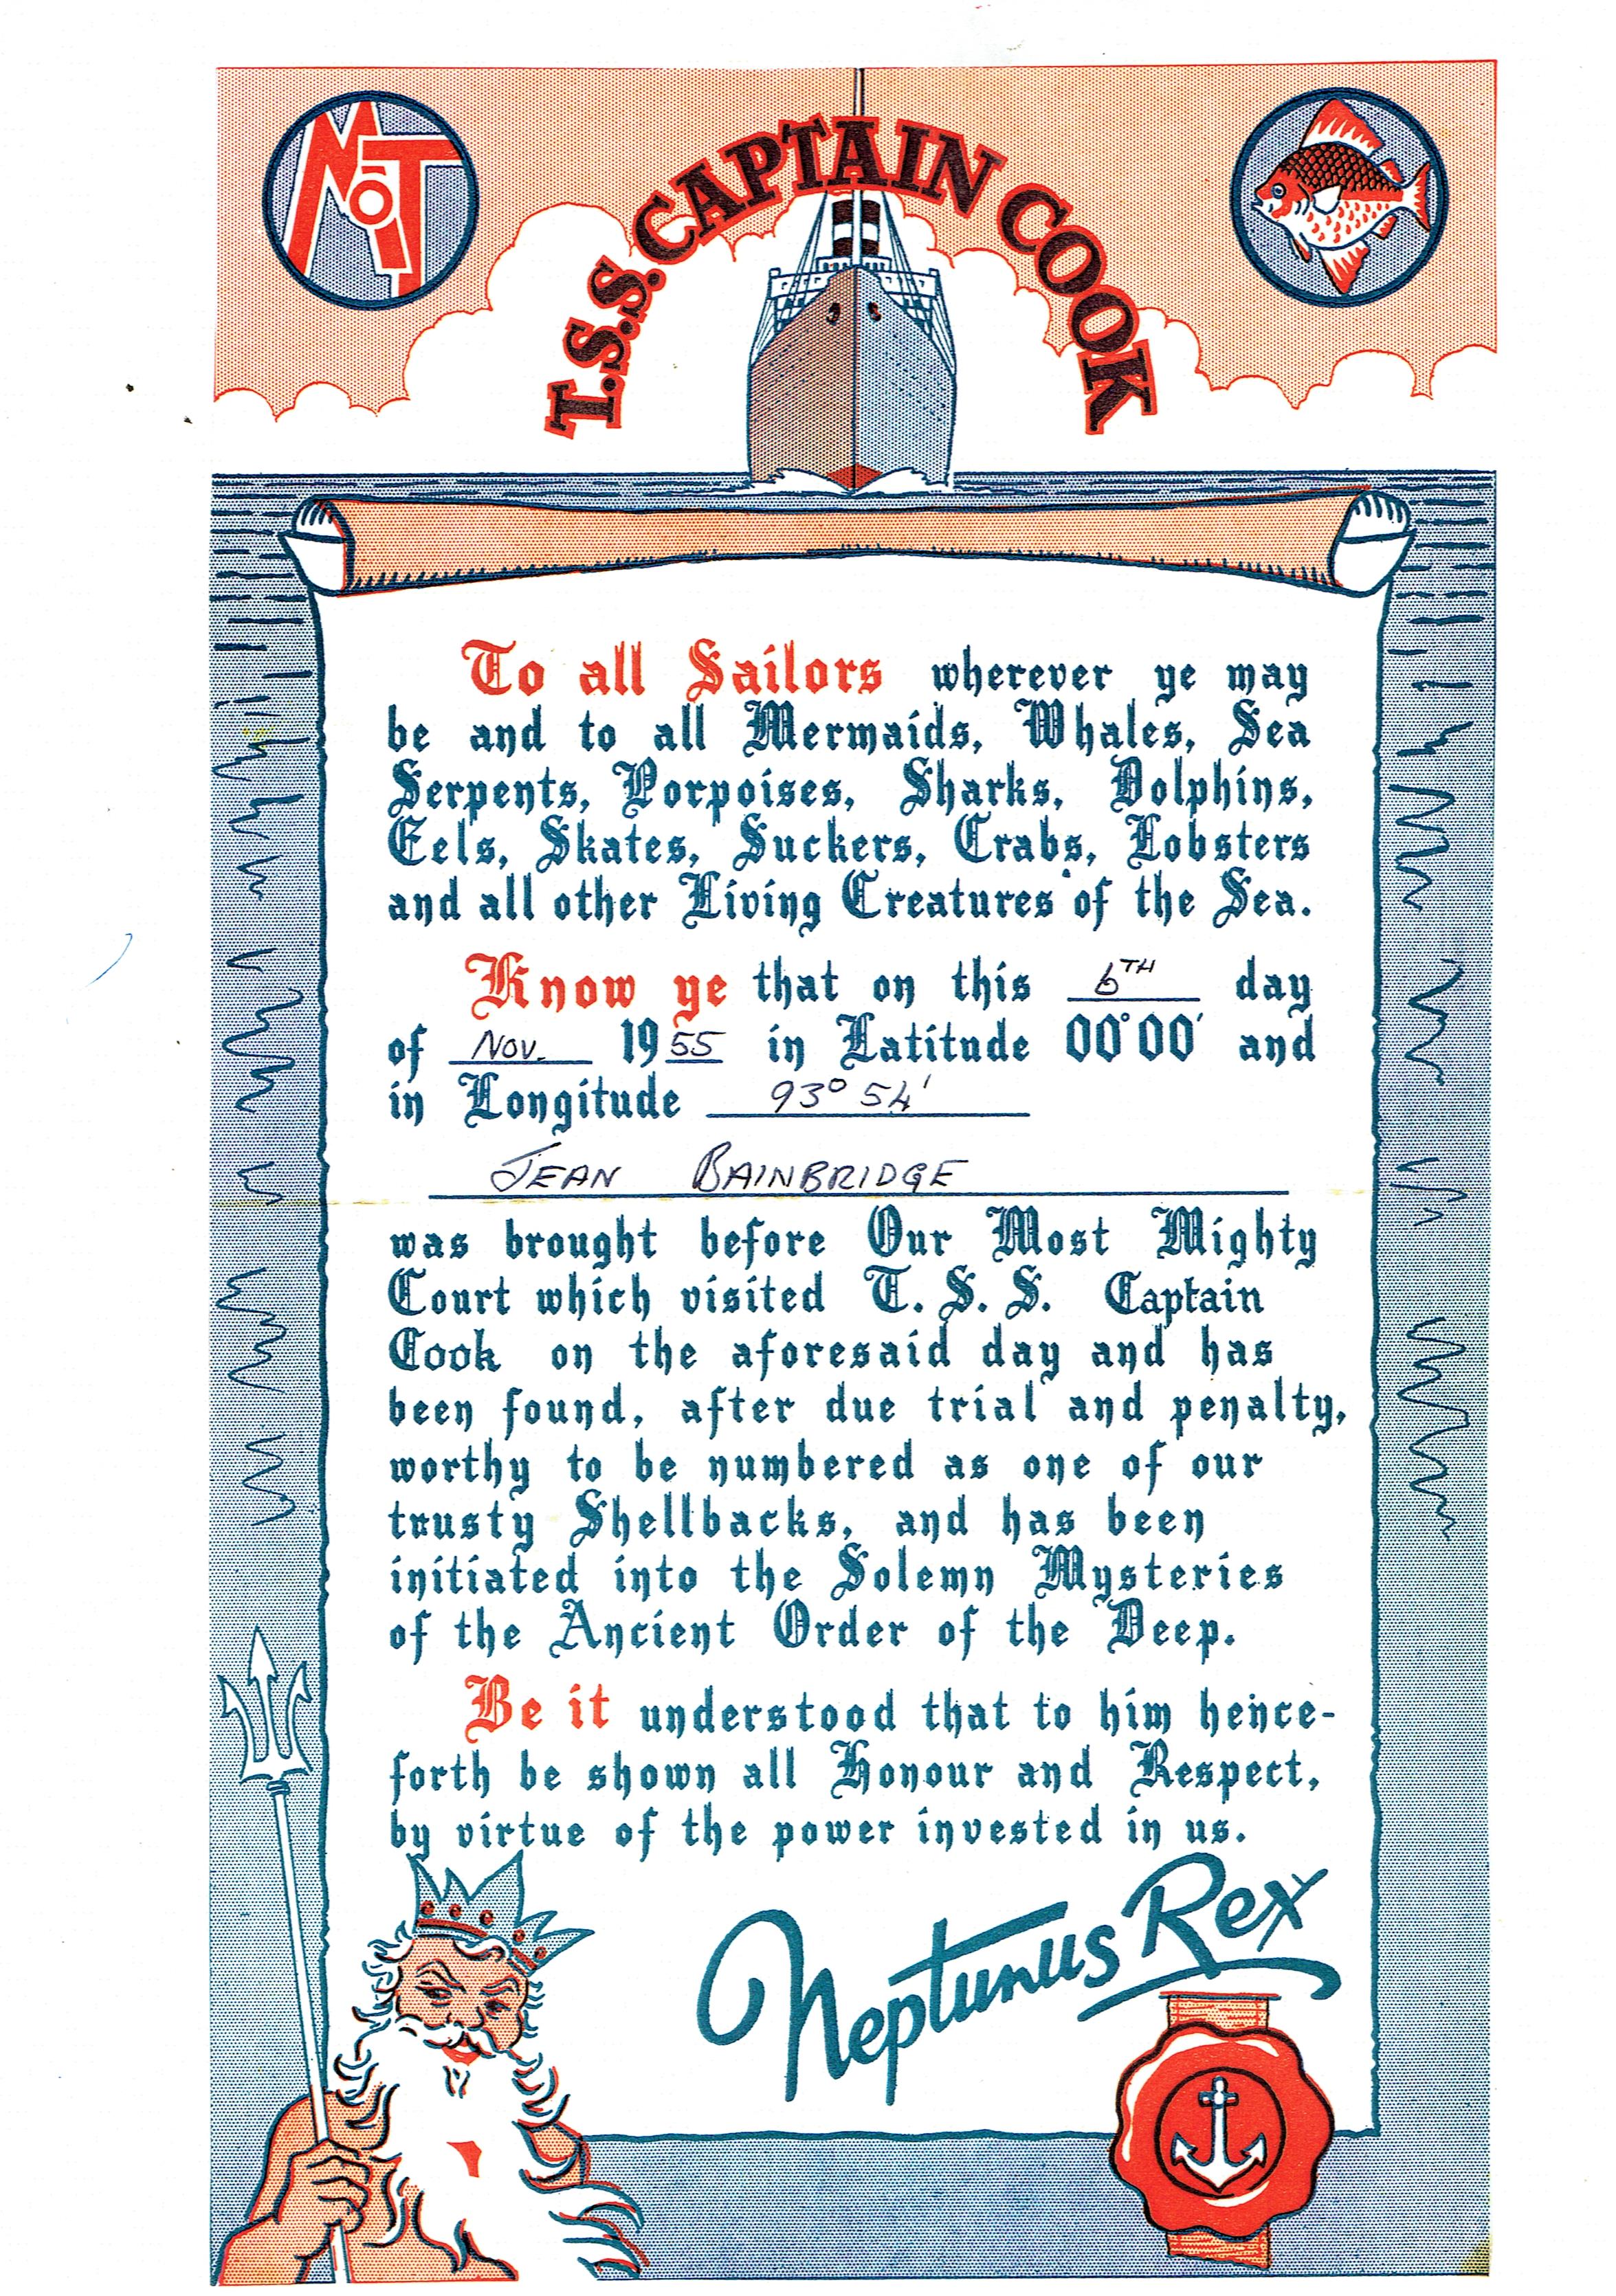 MoT
T.S.S. CAPTAIN COOK
To all Sailors wherever ye may
be and to all Mermaids, Whales, Sea
Serpents, Porpoises, Sharks, Dolphins,
Eels, Skates, Suckers, Crabs, Lobsters
and all other Living Creatures of the Sea.
Know ye that on this 6TH day
of Nov. 1955 in Latitude 00°00' and
in Longitude 93° 54'
JEAN BAINBRIDGE
was brought before Our Most Mighty
Court which visited T. S. S. Captain
Cook on the aforesaid day and has
been found, after due trial and penalty,
worthy to be numbered as one of our
trusty Shellbacks, and has been
initiated into the Solemn Mysteries
of the Ancient Order of the Deep.
Be it understood that to him hence-
forth be shown all Honour and Respect,
by virtue of the power invested in us.
Neptunus Rex